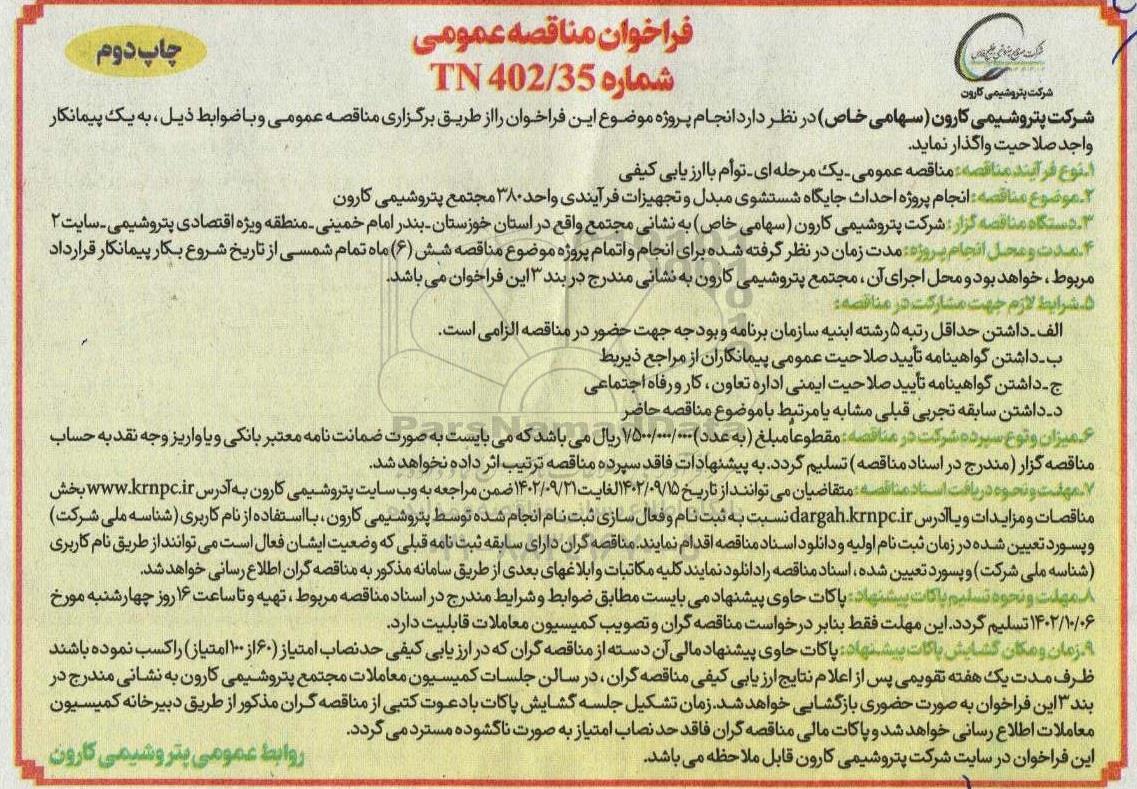 فراخوان مناقصه عمومی
شماره TN 402/35
چاپ دوم
شرکت پتروشیمی کارون
شرکت پتروشیمی کارون (سهامی خاص) در نظر دارد انجام پروژه موضوع این فراخوان را از طریق برگزاری مناقصه عمومی و با ضوابط ذیل، به یک پیمانکار
واجد صلاحیت واگذار نماید.
۱ـ نوع فرآیند مناقصه: مناقصه عمومی ـ یک مرحله ای ـ توأم با ارزیابی کیفی
۲ـ موضوع مناقصه: انجام پروژه احداث جایگاه شستشوی مبدل و تجهیزات فرآیندی واحد ۳۸۰ مجتمع پتروشیمی کارون
۳ـ دستگاه مناقصه گزار: شرکت پتروشیمی کارون (سهامی خاص) به نشانی مجتمع واقع در استان خوزستان ـ بندر امام خمینی ـ منطقه ویژه اقتصادی پتروشیمی ـ سایت ۲
۴ـ مدت و محل انجام پروژه: مدت زمان در نظر گرفته شده برای انجام و اتمام پروژه موضوع مناقصه شش (۶) ماه تمام شمسی از تاریخ شروع بکار پیمانکار قرارداد
مربوط، خواهد بود و محل اجرای آن، مجتمع پتروشیمی کارون به نشانی مندرج در بند ۳ این فراخوان می باشد.
۵ـ شرایط لازم جهت مشارکت در مناقصه:
الف ـ داشتن حداقل رتبه ۵ رشته ابنیه سازمان برنامه و بودجه جهت حضور در مناقصه الزامی است.
ب ـ داشتن گواهینامه تأیید صلاحیت عمومی پیمانکاران از مراجع ذیربط
ج ـ داشتن گواهینامه تأیید صلاحیت ایمنی اداره تعاون، کار و رفاه اجتماعی
د ـ داشتن سابقه تجربی قبلی مشابه یا مرتبط با موضوع مناقصه حاضر
ParsNamadData
۶ـ میزان و نوع سپرده شرکت در مناقصه: مقطوعاً مبلغ (به عدد) ۱/۵۰۰/۰۰۰/۰۰۰ ریال می باشد که می بایست به صورت ضمانت نامه معتبر بانکی و یا واریز وجه نقد به حساب
مناقصه گزار (مندرج در اسناد مناقصه) تسلیم گردد. به پیشنهادات فاقد سپرده مناقصه ترتیب اثر داده نخواهد شد.
۷ـ مهلت و نحوه دریافت اسناد مناقصه: متقاضیان می توانند از تاریخ ۱۴۰۲/۰۹/۱۵ لغایت ۱۴۰۲/۰۹/۲۱ ضمن مراجعه به وب سایت پتروشیمی کارون به آدرس www.krnpc.ir بخش
مناقصات و مزایدات و یا آدرس dargah.krnpc.ir نسبت به ثبت نام و فعال سازی ثبت نام انجام شده توسط پتروشیمی کارون، با استفاده از نام کاربری (شناسه ملی شرکت)
و پسورد تعیین شده در زمان ثبت نام اولیه و دانلود اسناد مناقصه اقدام نمایند. مناقصه گران دارای سابقه ثبت نامه قبلی که وضعیت ایشان فعال است می توانند از طریق نام کاربری
(شناسه ملی شرکت) و پسورد تعیین شده، اسناد مناقصه را دانلود نمایند کلیه مکاتبات و ابلاغهای بعدی از طریق سامانه مذکور به مناقصه گران اطلاع رسانی خواهد شد.
۸ـ مهلت و نحوه تسلیم پاکات پیشنهاد: پاکات حاوی پیشنهاد می بایست مطابق ضوابط و شرایط مندرج در اسناد مناقصه مربوط، تهیه و تا ساعت ۱۶ روز چهارشنبه مورخ
۱۴۰۲/۱۰/۰۶ تسلیم گردد. این مهلت فقط بنابر درخواست مناقصه گران و تصویب کمیسیون معاملات قابلیت دارد.
۹ـ زمان و مکان گشایش پاکات پیشنهاد: پاکات حاوی پیشنهاد مالی آن دسته از مناقصه گران که در ارزیابی کیفی حد نصاب امتیاز (۶۰ از ۱۰۰ امتیاز) را کسب نموده باشند
ظرف مدت یک هفته تقویمی پس از اعلام نتایج ارزیابی کیفی مناقصه گران، در سالن جلسات کمیسیون معاملات مجتمع پتروشیمی کارون به نشانی مندرج در
بند ۳ این فراخوان به صورت حضوری بازگشایی خواهد شد. زمان تشکیل جلسه گشایش پاکات با دعوت کتبی از مناقصه گران مذکور از طریق دبیرخانه کمیسیون
معاملات اطلاع رسانی خواهد شد و پاکات مالی مناقصه گران فاقد حد نصاب امتیاز به صورت ناگشوده مسترد می گردد.
این فراخوان در سایت شرکت پتروشیمی کارون قابل ملاحظه می باشد.
روابط عمومی پتروشیمی کارون